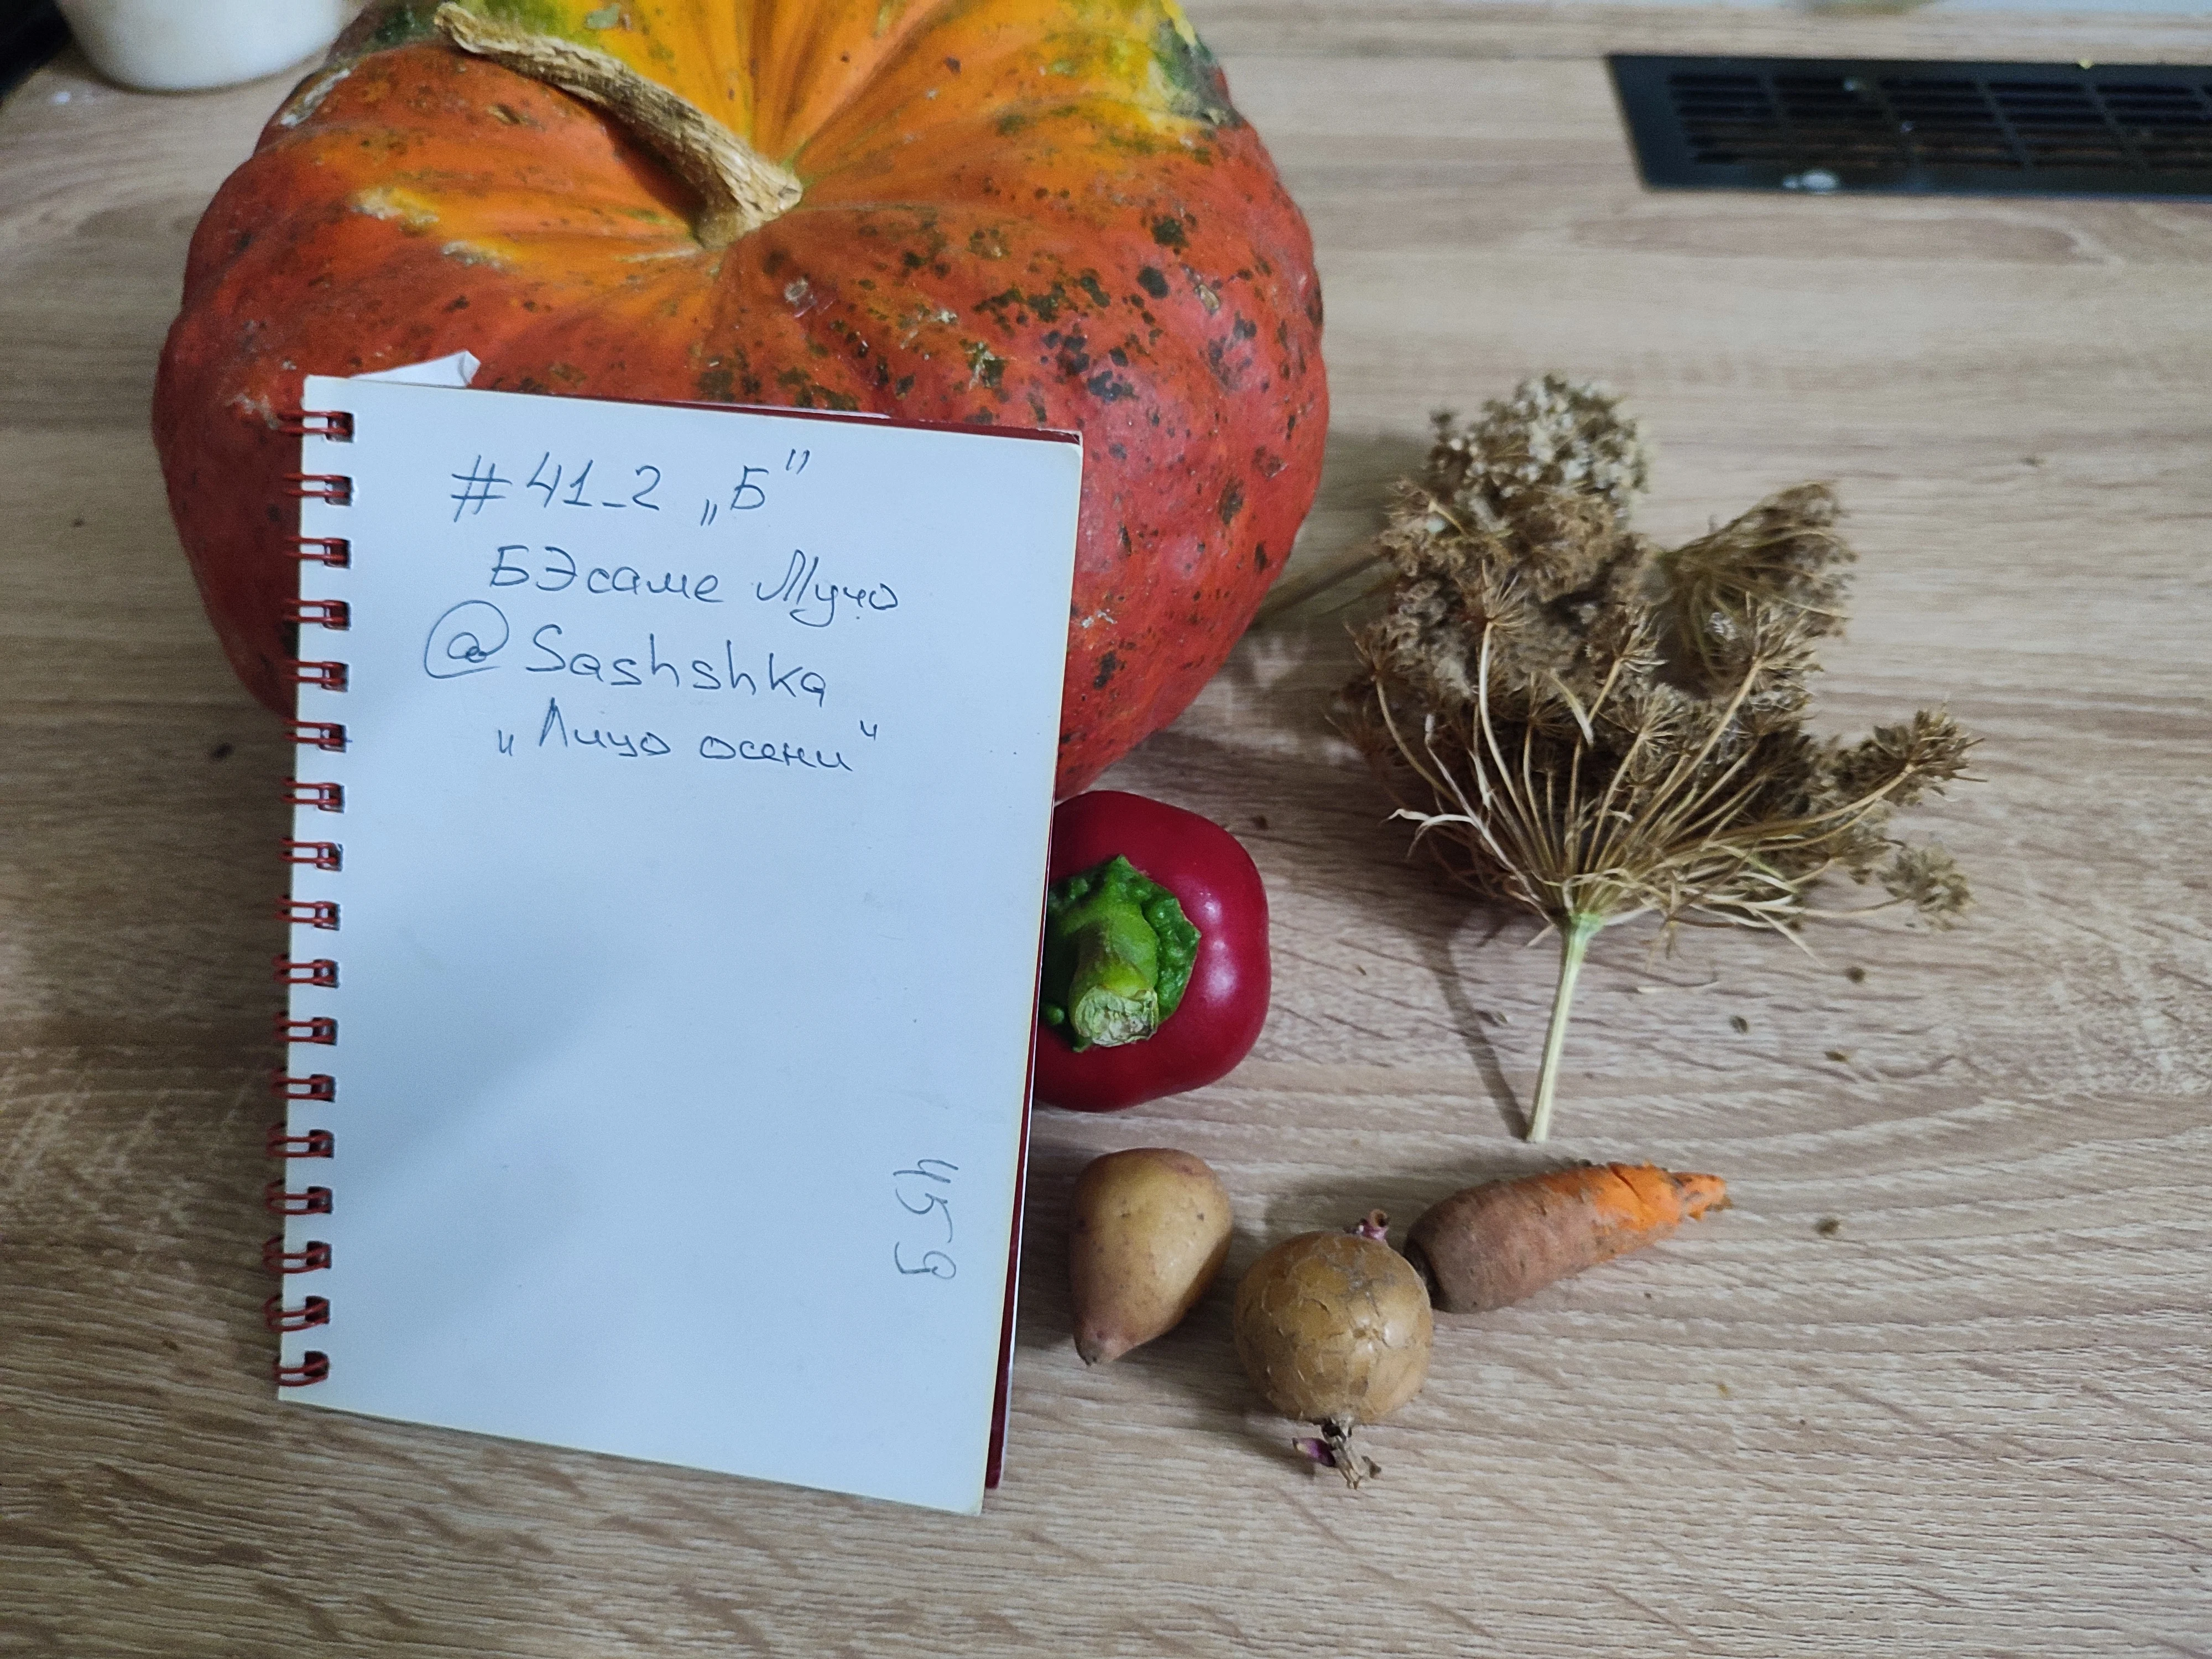 #41_2 „Б"
БЭсаме Мучо
@Sashshka
„Лицо осени"
459